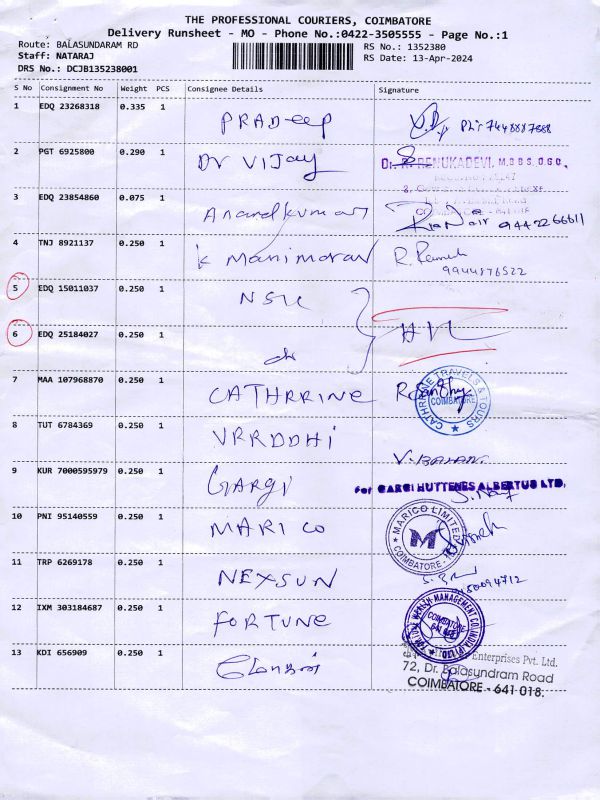 THE PROFESSIONAL COURIERS, COIMBATORE
Delivery Runsheet - MO - Phone No.:0422-3505555 - Page No.:1
Route: BALASUNDARAM RD
RS No.: 1352380
Staff: NATARAJ
RS Date: 13-Apr-2024
DRS No.: DCJB135238001
S No Consignment No Weight PCS Consignee Details Signature
1 EDQ 23268318 0.335 1 PRADeep
2 PGT 6925800 0.290 1 Dr VIJay Dr. RENUKADEVI, M.B.B.S, D.G.O.,
3 EDQ 23854860 0.075 1 Anandkumar 9442266611
4 TNJ 8921137 0.250 1 K Manimaran R. Ramesh
9944876522
5 EDQ 15011037 0.250 1
6 EDQ 25184027 0.250 1
7 MAA 107968870 0.250 1 CATHRRINE R. Santhy
CATHRRINE TRAVELS & TOURS
COIMBATORE
8 TUT 6784369 0.250 1 VRRDDHI
9 KUR 7000595979 0.250 1 GARGI
For GARGI HUTTENES ALBERTUS LTD.
10 PNI 95140559 0.250 1 MARICO
MARICO LIMITED
M
COIMBATORE
11 TRP 6269178 0.250 1 NEXSUN
12 IXM 303184687 0.250 1 FORTUNE
FORTUNE WEALTH MANAGEMENT
COIMBATORE
13 KDI 656909 0.250 1
Enterprises Pvt. Ltd.
72, Dr. Balasundram Road
COIMBATORE - 641 018.